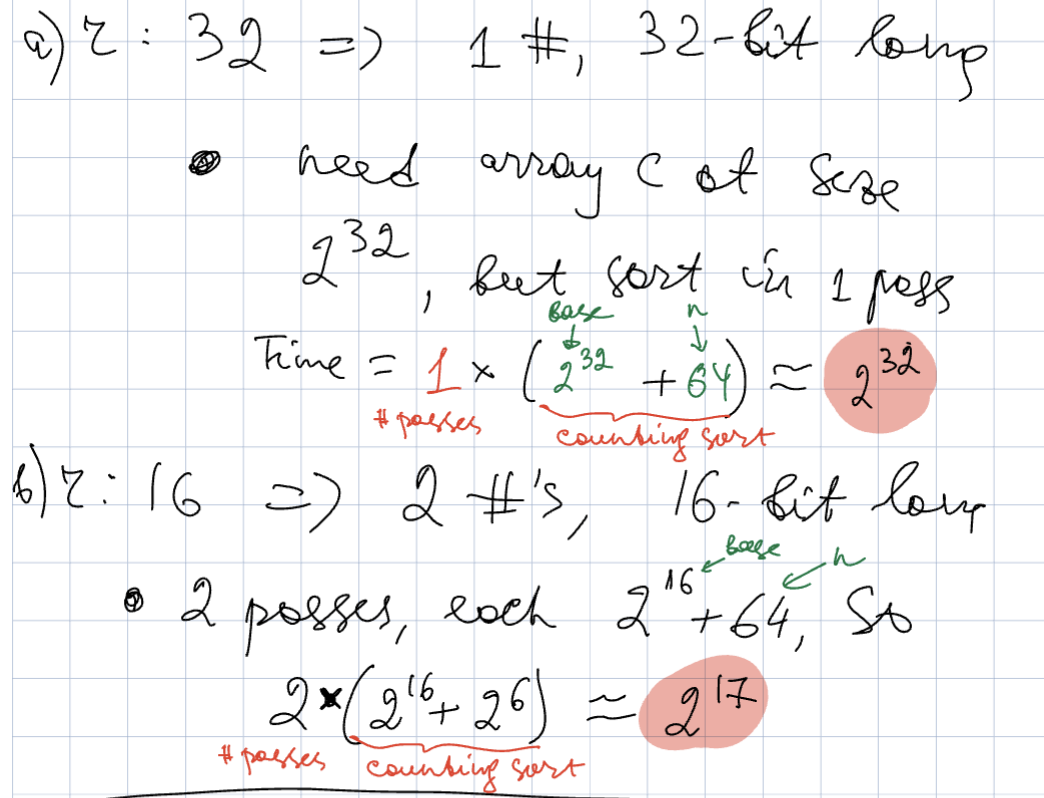 a) r : 32 => 1 #, 32-bit long
• need array C of size
2^32, but sort in 1 pass
base n
Time = 1 × (2^32 + 64) ≈ 2^32
# passes counting sort
b) r : 16 => 2 #'s, 16-bit long
base n
• 2 passes, each 2^16 + 64, so
2 × (2^16 + 2^6) ≈ 2^17
# passes counting sort